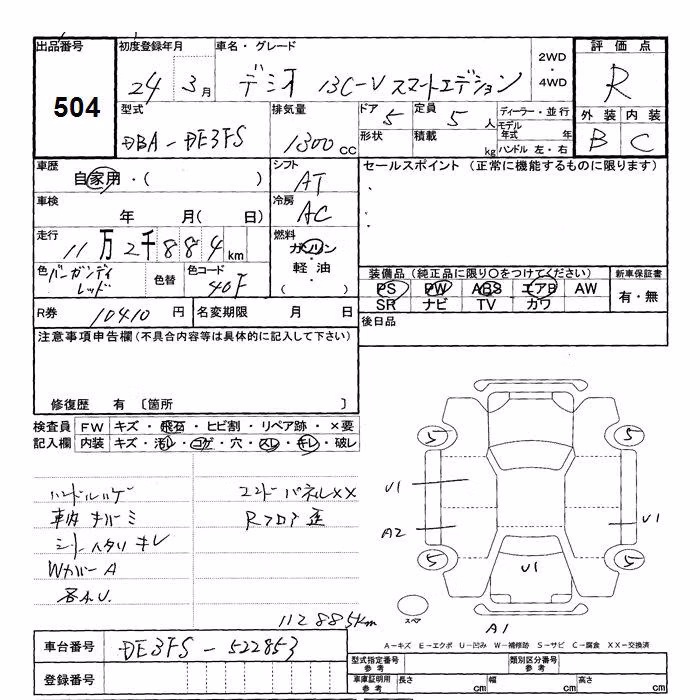 出品番号 初度登録年月 車名・グレード 2WD・4WD 評価点
504 24 3月 デミオ 13C-V スマートエディション R
型式 排気量 ドア 5 定員 5人 ディーラー・並行 外装 内装
DBA-DE3FS 1300cc 形状 積載 kg モデル年式 年 B C
ハンドル 左・右
車歴 シフト セールスポイント (正常に機能するものに限ります)
自家用・( ) AT
車検 年 月( 日) 冷房 AC
走行 11万2千884km 燃料 ガソリン
色 バーガンディレッド 色替 色コード 40F 軽油・( )
装備品 (純正品に限り○をつけてください) 新車保証書
PS PW ABS エアB AW 有・無
SR ナビ TV カワ
R券 10410円 名変期限 月 日 後日品
注意事項申告欄 (不具合内容等は具体的に記入して下さい)
修復歴 有 〔箇所 〕
検査員 FW キズ・飛石・ヒビ割・リペア跡・×要
記入欄 内装 キズ・汚レ・コゲ・穴・スレ・キレ・破レ
ハンドルハゲ エンドパネルXX
車内キバミ Rフロア歪
シートヘタリ キレ
WカバーA
各A.U.
112885km
5 5
U1
A2 U1
5 U1 5
スペア A1
A-キズ E-エクボ U-凹み W-補修跡 S-サビ C-腐食 XX-交換済
車台番号 DE3FS-522853
登録番号
型式指定番号 参考 類別区分番号 参考
車庫証明用 参考 長さ cm 幅 cm 高さ cm